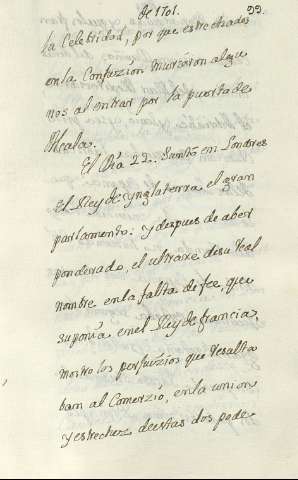 de 1701. 99.
la Celebridad, por que estrechados
en la Confuzzion murieron algu
nos al entrar por la puerta de
Alcala.
El Dia 22. Juntó en Londres
El Rey de Ynglaterra, el gran
parlamento: y despues de aber
ponderado, el ultraxe de su Real
nombre en la falta de fee, que
suponia en el Rey de francia,
mostro los perjuizios que resalta
bam al Comerzio, en la union
y estrechez de estas dos pode